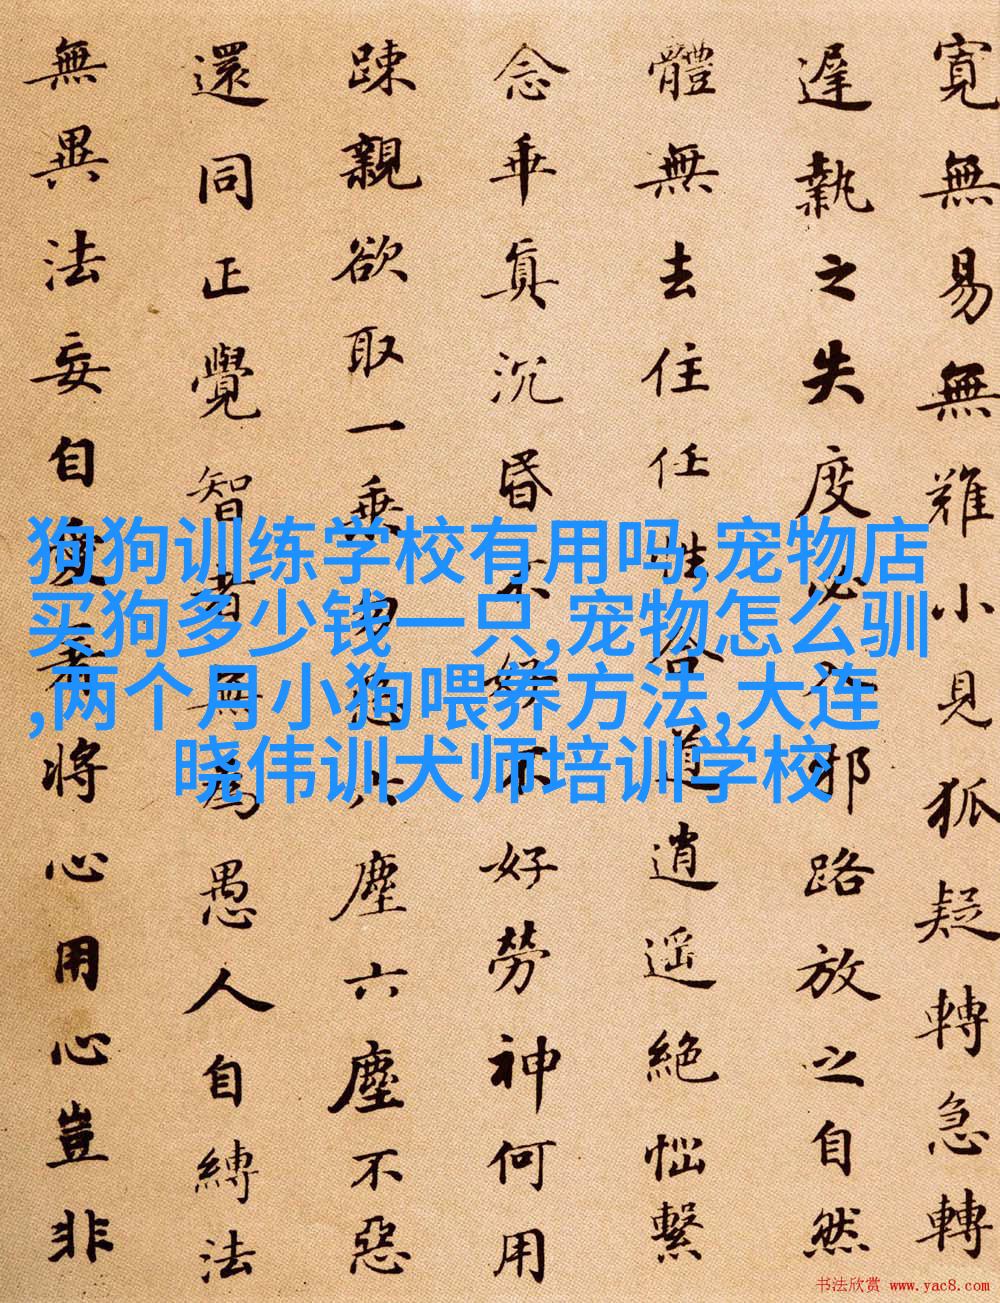 寬無易無難小見狐疑轉急轉
遲執之失度必入邪路放之自然
體無去住任性合道逍遥絕惱繫
念乖真沉昏不好不好勞神何用
踈親欲取一乘勿惡六塵六塵不惡
還同正覺智者無為愚人自縛法
無異法妄自愛著將心用心豈非
狗狗训练学校有用吗,宠物店
买狗多少钱一只,宠物怎么驯
,两个月小狗喂养方法,大连
晓伟训犬师培训学校
书法欣赏 www.yac8.com